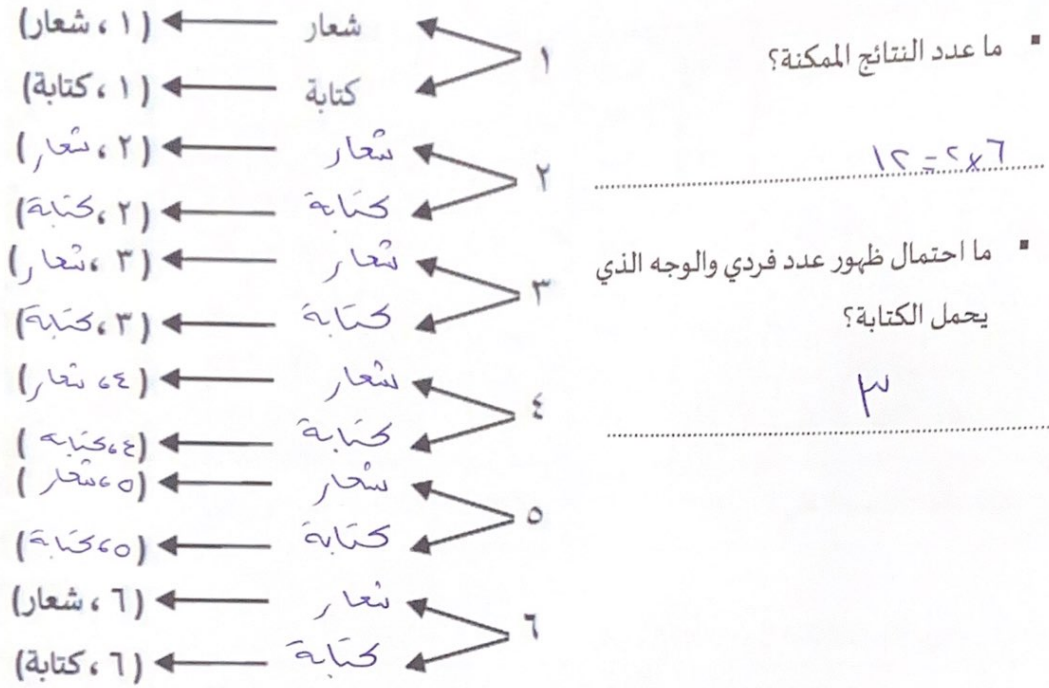 ▪ ما عدد النتائج الممكنة؟
٦×٢=١٢
▪ ما احتمال ظهور عدد فردي والوجه الذي
يحمل الكتابة؟
٣
١
شعار (١ ، شعار)
كتابة (١ ، كتابة)
٢
شعار (٢ ، شعار)
كتابة (٢ ، كتابة)
٣
شعار (٣ ، شعار)
كتابة (٣ ، كتابة)
٤
شعار (٤ ، شعار)
كتابة (٤ ، كتابة)
٥
شعار (٥ ، شعار)
كتابة (٥ ، كتابة)
٦
شعار (٦ ، شعار)
كتابة (٦ ، كتابة)